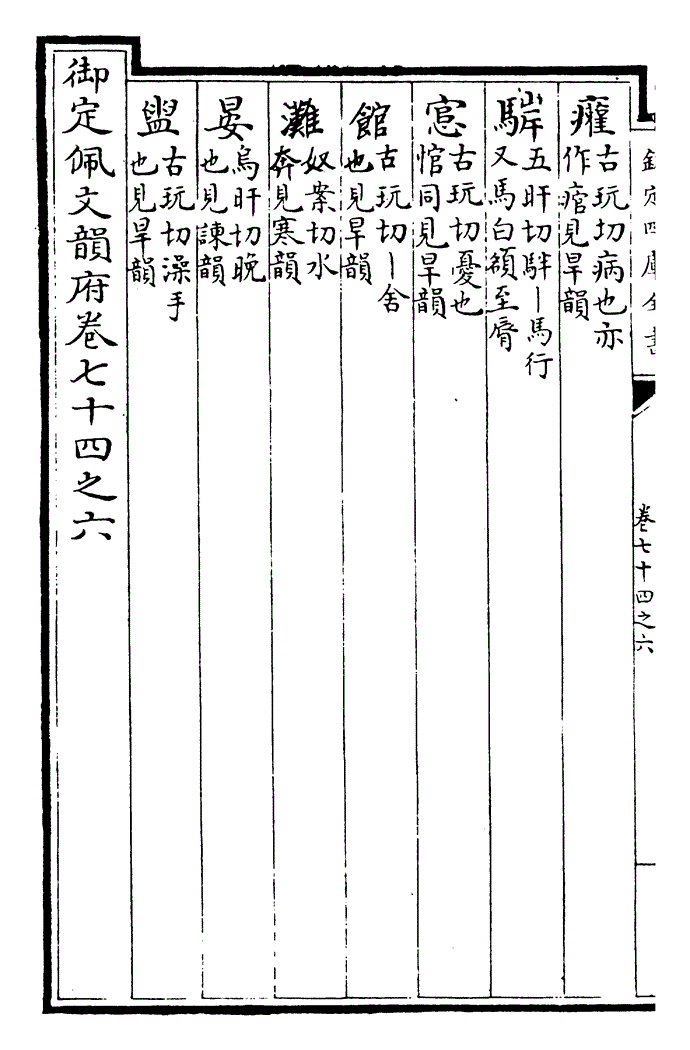 欽定四庫全書
卷七十四之六
癯古玩切病也亦
作痯見旱韻
騿五旰切駻丨馬行
又馬白額至脣
悹古玩切憂也
悺同見旱韻
館古玩切丨舍
也見旱韻
灘奴案切水
奔見寒韻
晏烏旰切晚
也見諫韻
盥古玩切澡手
也見旱韻
御定佩文韻府卷七十四之六